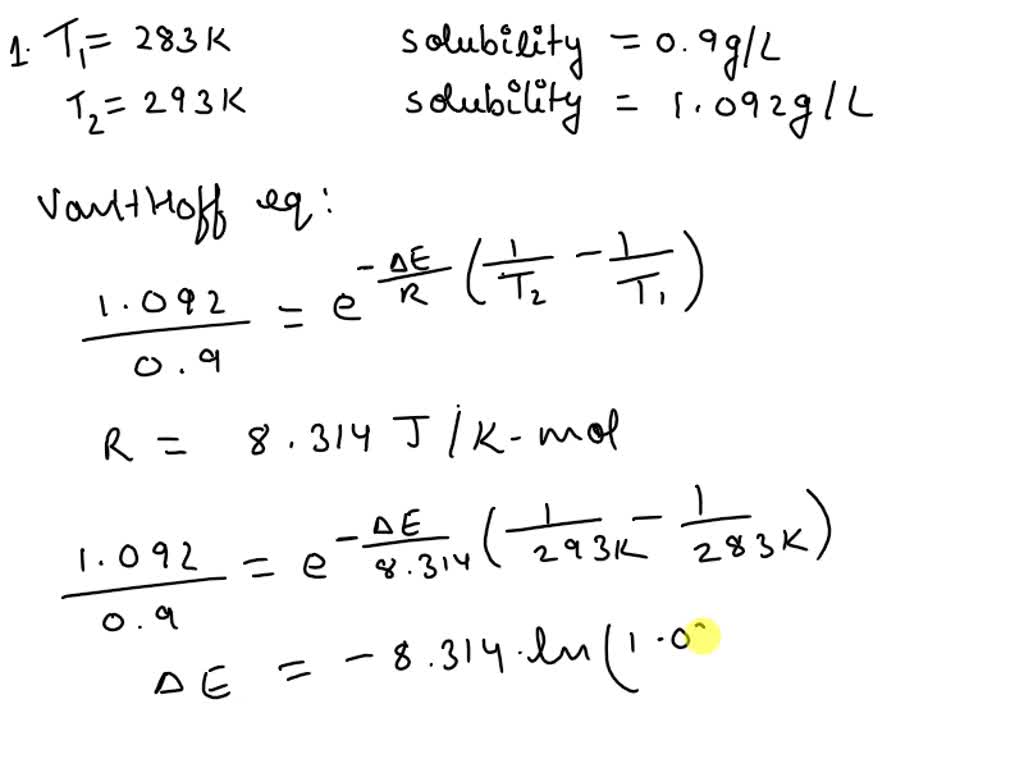 1. T₁ = 283K solubility = 0.9g/L
T₂ = 293K solubility = 1.092g/L
Van+Hoff eq:
1.092/0.9 = e^(-ΔE/R (1/T₂ - 1/T₁))
R = 8.314 J/K-mol
1.092/0.9 = e^(-ΔE/8.314 (1/293K - 1/283K))
ΔE = -8.314.ln(1.0